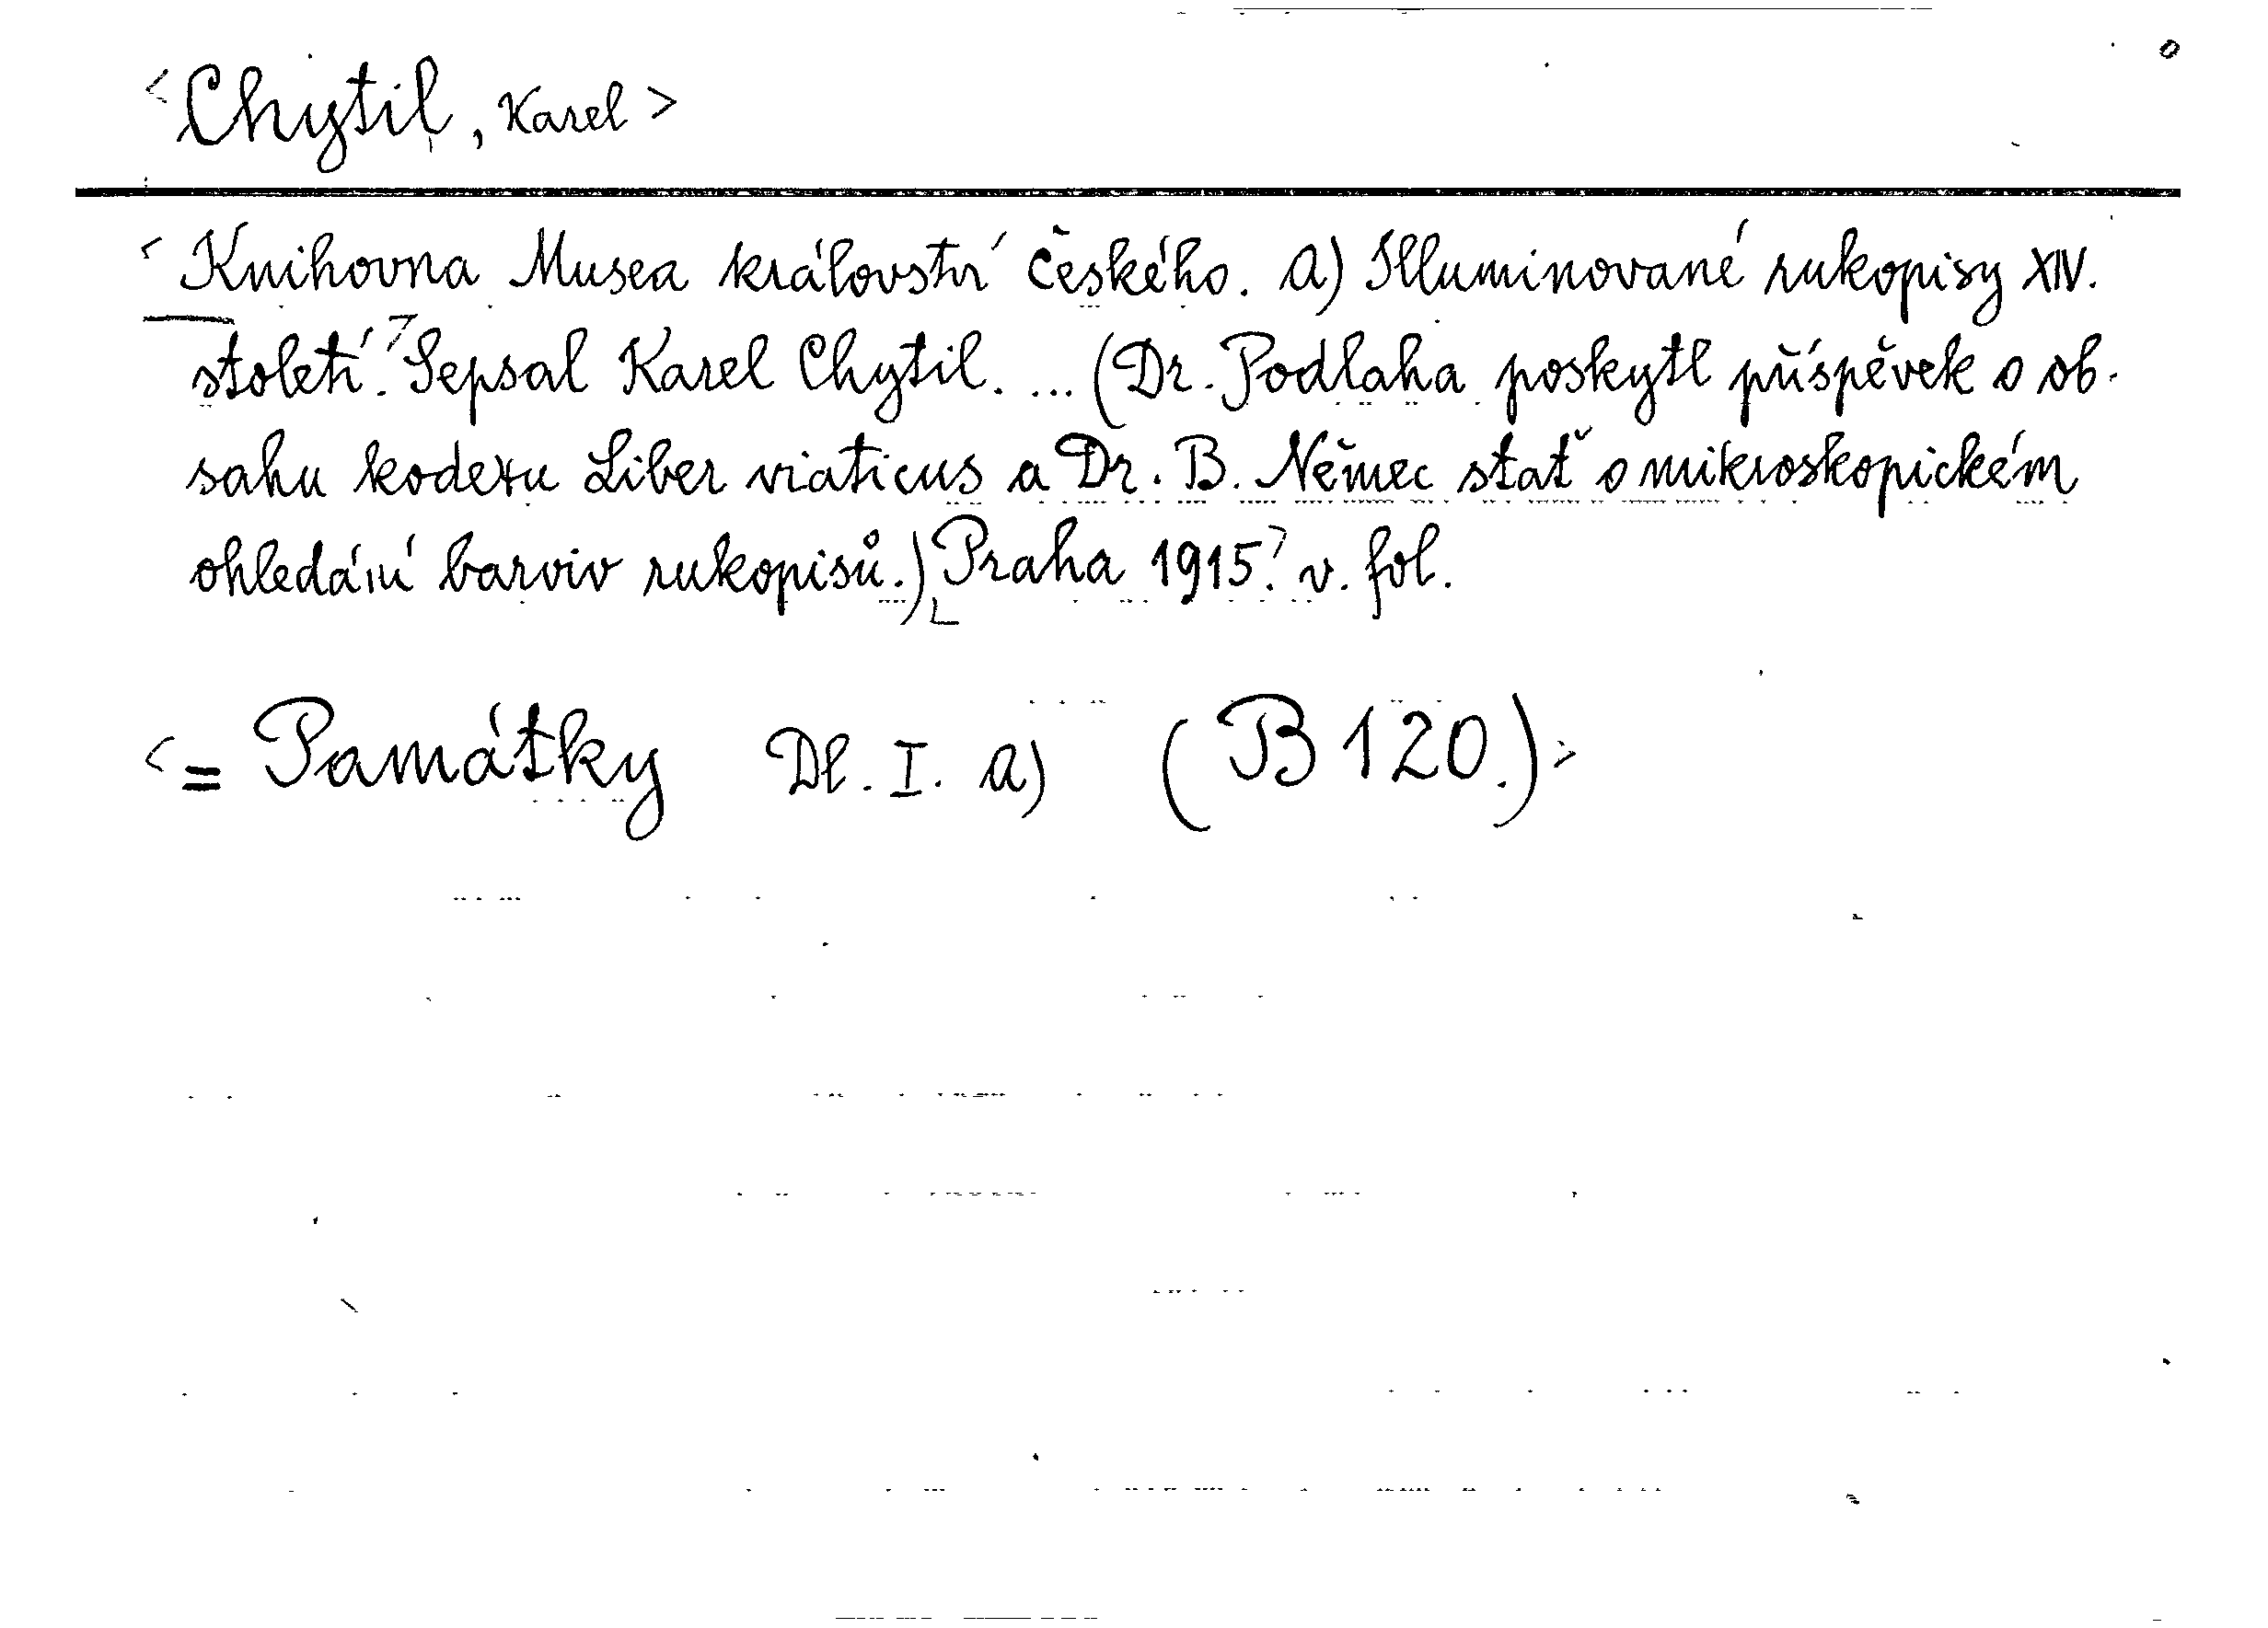 <Chytil, Karel>
Knihovna Musea království Českého. a) Illuminované rukopisy XIV.
století. Sepsal Karel Chytil. ... (Dr. Podlaha poskytl příspěvek o ob-
sahu kodexu Liber viaticus a Dr. B. Němec stať o mikroskopickém
ohledání barviv rukopisů.) Praha 1915. v. fol.
<= Památky Dl. I. a) (B 120.)>